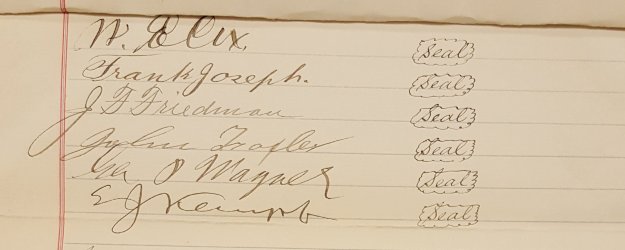 W. E. Cox. Seal
Frank Joseph. Seal
J F Friedman Seal
John Seal
Geo P Wagner Seal
E J Kempf Seal